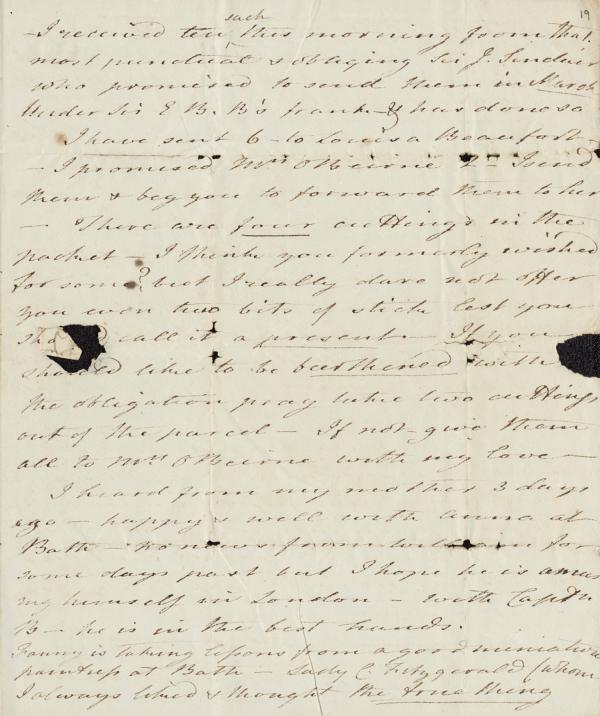 19
such
- I received ten this morning from that
most punctual & obliging Sir J. Sinclair
who promised to send them in March
Under Sir E B. B's frank - & has done so
I have sent 6 - to Louisa Beaufort -
- I promised Mrs O'Beirne 2 - I send
them & beg you to forward them to her
- There are four cuttings in the
packet - I think you formerly wished
for some? but I really dare not offer
you even two bits of stick lest you
call it a present - If you
should like to be burthened with
the obligation pray take two cuttings
out of the parcel - If not - give them
all to Mrs O'Beirne with my love -
I heard from my mother 3 days
ago - happy & well with Anna at
Bath - no news from William for
some days past but I hope he is amus
ing himself in London - with Captn
B - he is in the best hands.
Fanny is taking lessons from a good miniature
paintress at Bath - Lady C. Fitzgerald (whom
I always liked & thought the true thing